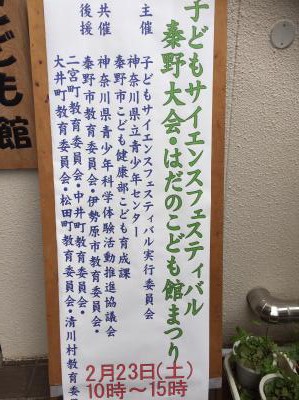 子どもサイエンスフェスティバル
秦野大会・はだのこども館まつり
主催
子どもサイエンスフェスティバル実行委員会
神奈川県立青少年センター
秦野市こども健康部こども育成課
共催
神奈川県青少年科学体験活動推進協議会
後援
秦野市教育委員会・伊勢原市教育委員会・
二宮町教育委員会・中井町教育委員会・
大井町教育委員会・松田町教育委員会・清川村教育委員
2月23日(土)
10時〜15時
こども館